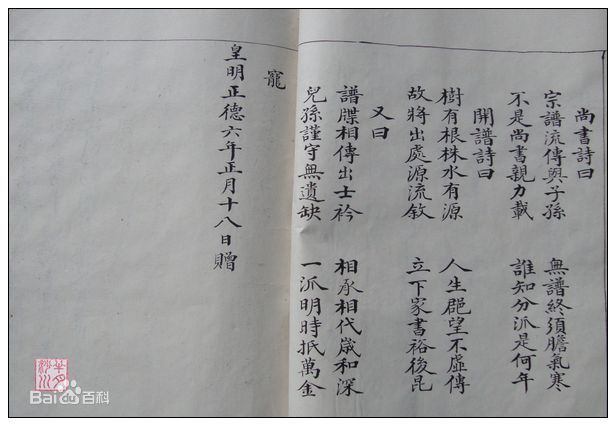 尚書詩曰
宗譜流傳與子孫 無譜終須膽氣寒
不是尚書親力載 誰知分派是何年
開譜詩曰
樹有根株水有源 人生郡望不虛傳
故將出處源流敘 立下家書裕後昆
又曰
譜牒相傳出士衿 相承相代歲和深
兒孫謹守無遺缺 一派明時抵萬金
寵
皇明正德六年正月十八日贈
Bai百科